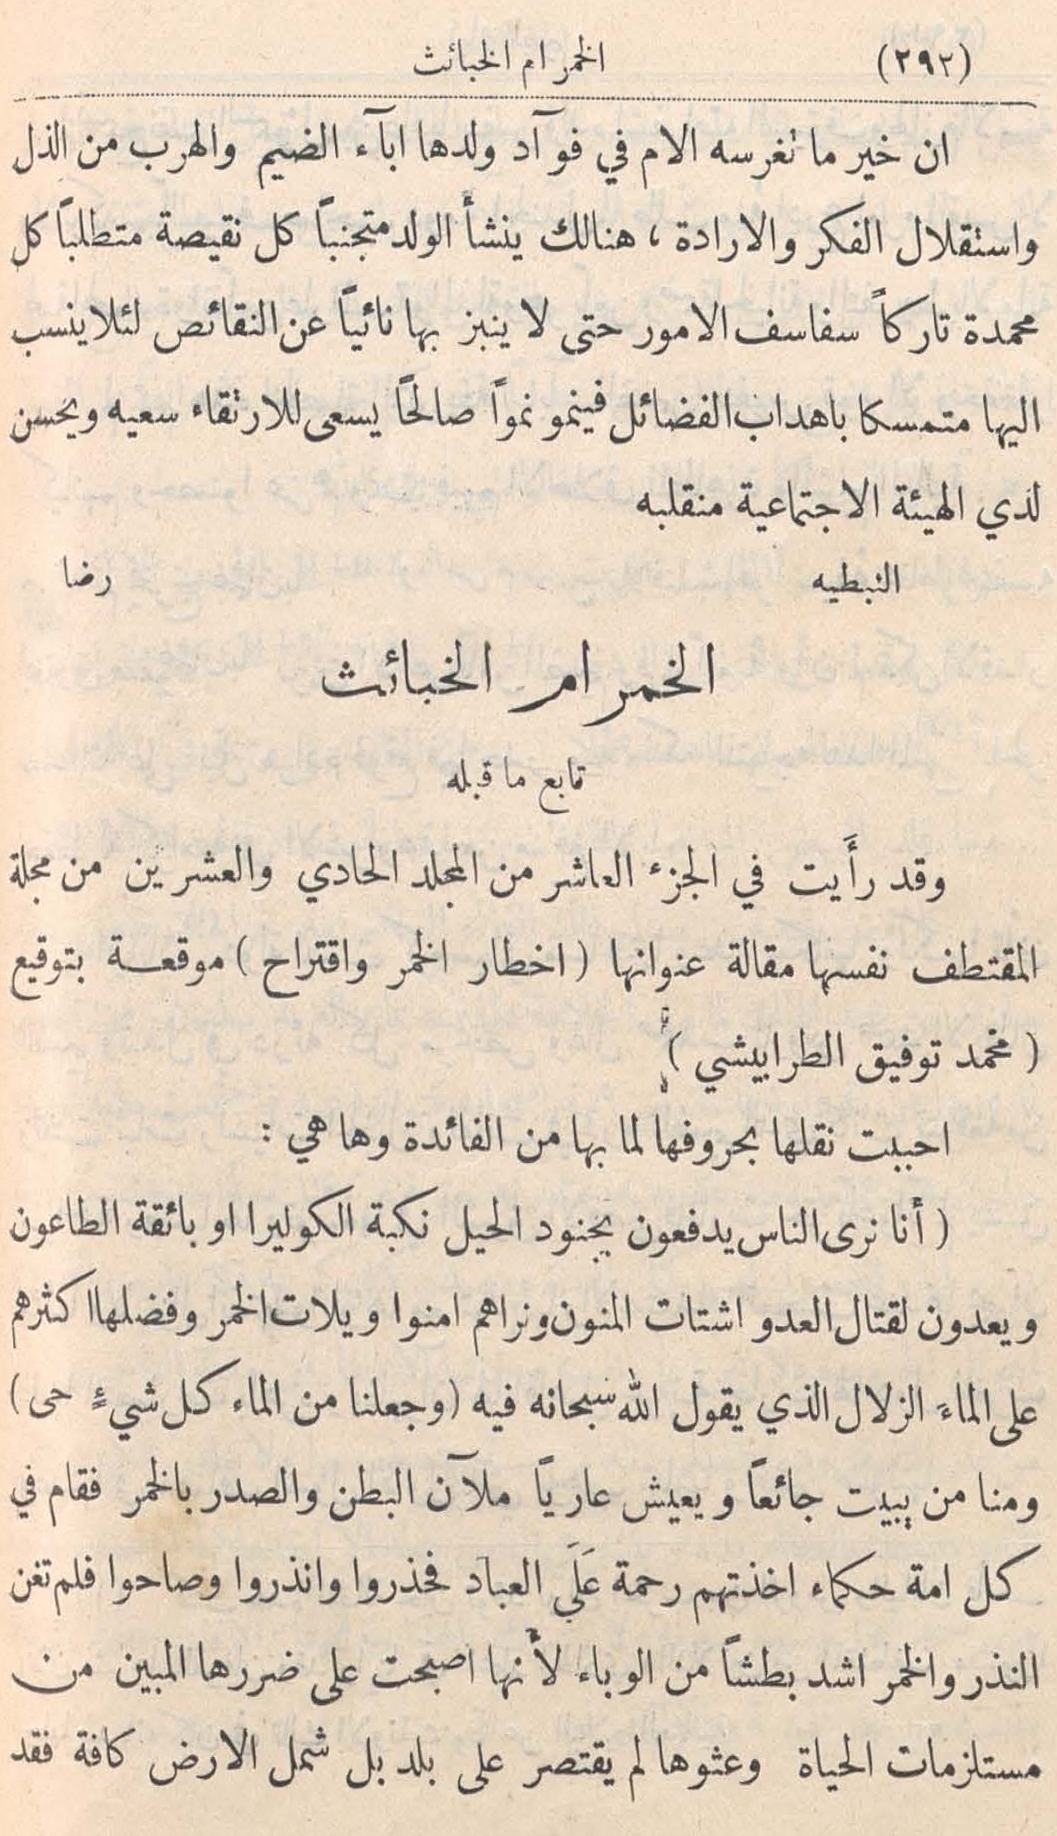 (٢٩٢) الخمر ام الخبائث
ان خير ما تغرسه الام في فوآد ولدها ابآء الضيم والهرب من الذل
واستقلال الفكر والارادة ، هنالك ينشأ الولد متجنباً كل نقيصة متطلباً كل
محمدة تاركاً سفاسف الامور حتى لا ينبز بها نائياً عن النقائص لئلا ينسب
اليها متمسكا باهداب الفضائل فينمو نمواً صالحاً يسعى للارتقاء سعيه ويحسن
لذي الهيئة الاجتماعية منقلبه
النبطيه رضا
الخمر ام الخبائث
تابع ما قبله
وقد رأَيت في الجزء العاشر من المجلد الحادي والعشرين من مجلة
المقتطف نفسها مقالة عنوانها ( اخطار الخمر واقتراح ) موقعة بتوقيع
( محمد توفيق الطرابيشي )
احببت نقلها بحروفها لما بها من الفائدة وها هي :
( أنا نرى الناس يدفعون بجنود الحيل نكبة الكوليرا او بائقة الطاعون
ويعدون لقتال العدو اشتات المنون ونراهم امنوا ويلات الخمر وفضلها اكثرهم
على الماء الزلال الذي يقول الله سبحانه فيه (وجعلنا من الماء كل شيءٍ حى)
ومنا من يبيت جائعاً ويعيش عارياً ملآن البطن والصدر بالخمر فقام في
كل امة حكماء اخذتهم رحمة عَلَى العباد فحذروا وانذروا وصاحوا فلم تغن
النذر والخمر اشد بطشاً من الوباء لأنها اصبحت على ضررها المبين من
مستلزمات الحياة وعثوها لم يقتصر على بلد بل شمل الارض كافة فقد